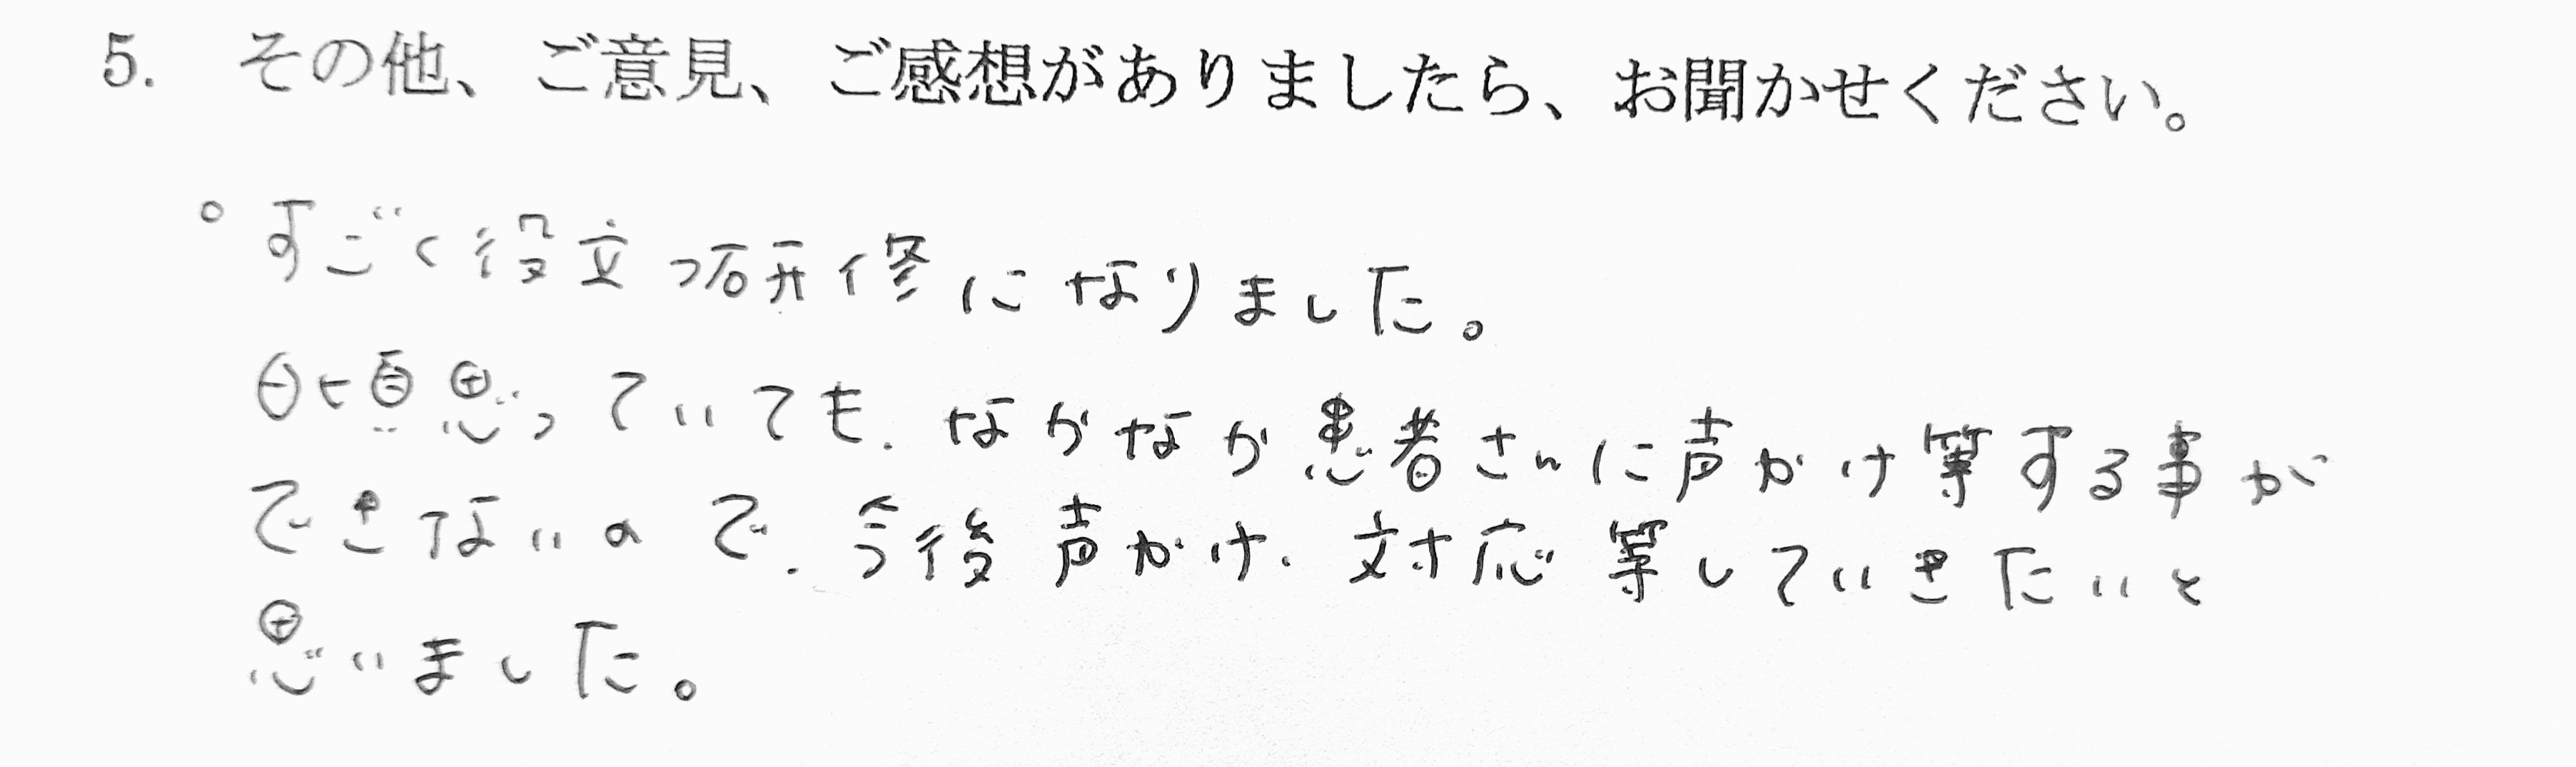 5. その他、ご意見、ご感想がありましたら、お聞かせください。
。すごく役立つ研修になりました。
日頃思っていても、なかなか患者さんに声かけ等する事が
できないので、今後声かけ、対応等していきたいと
思いました。